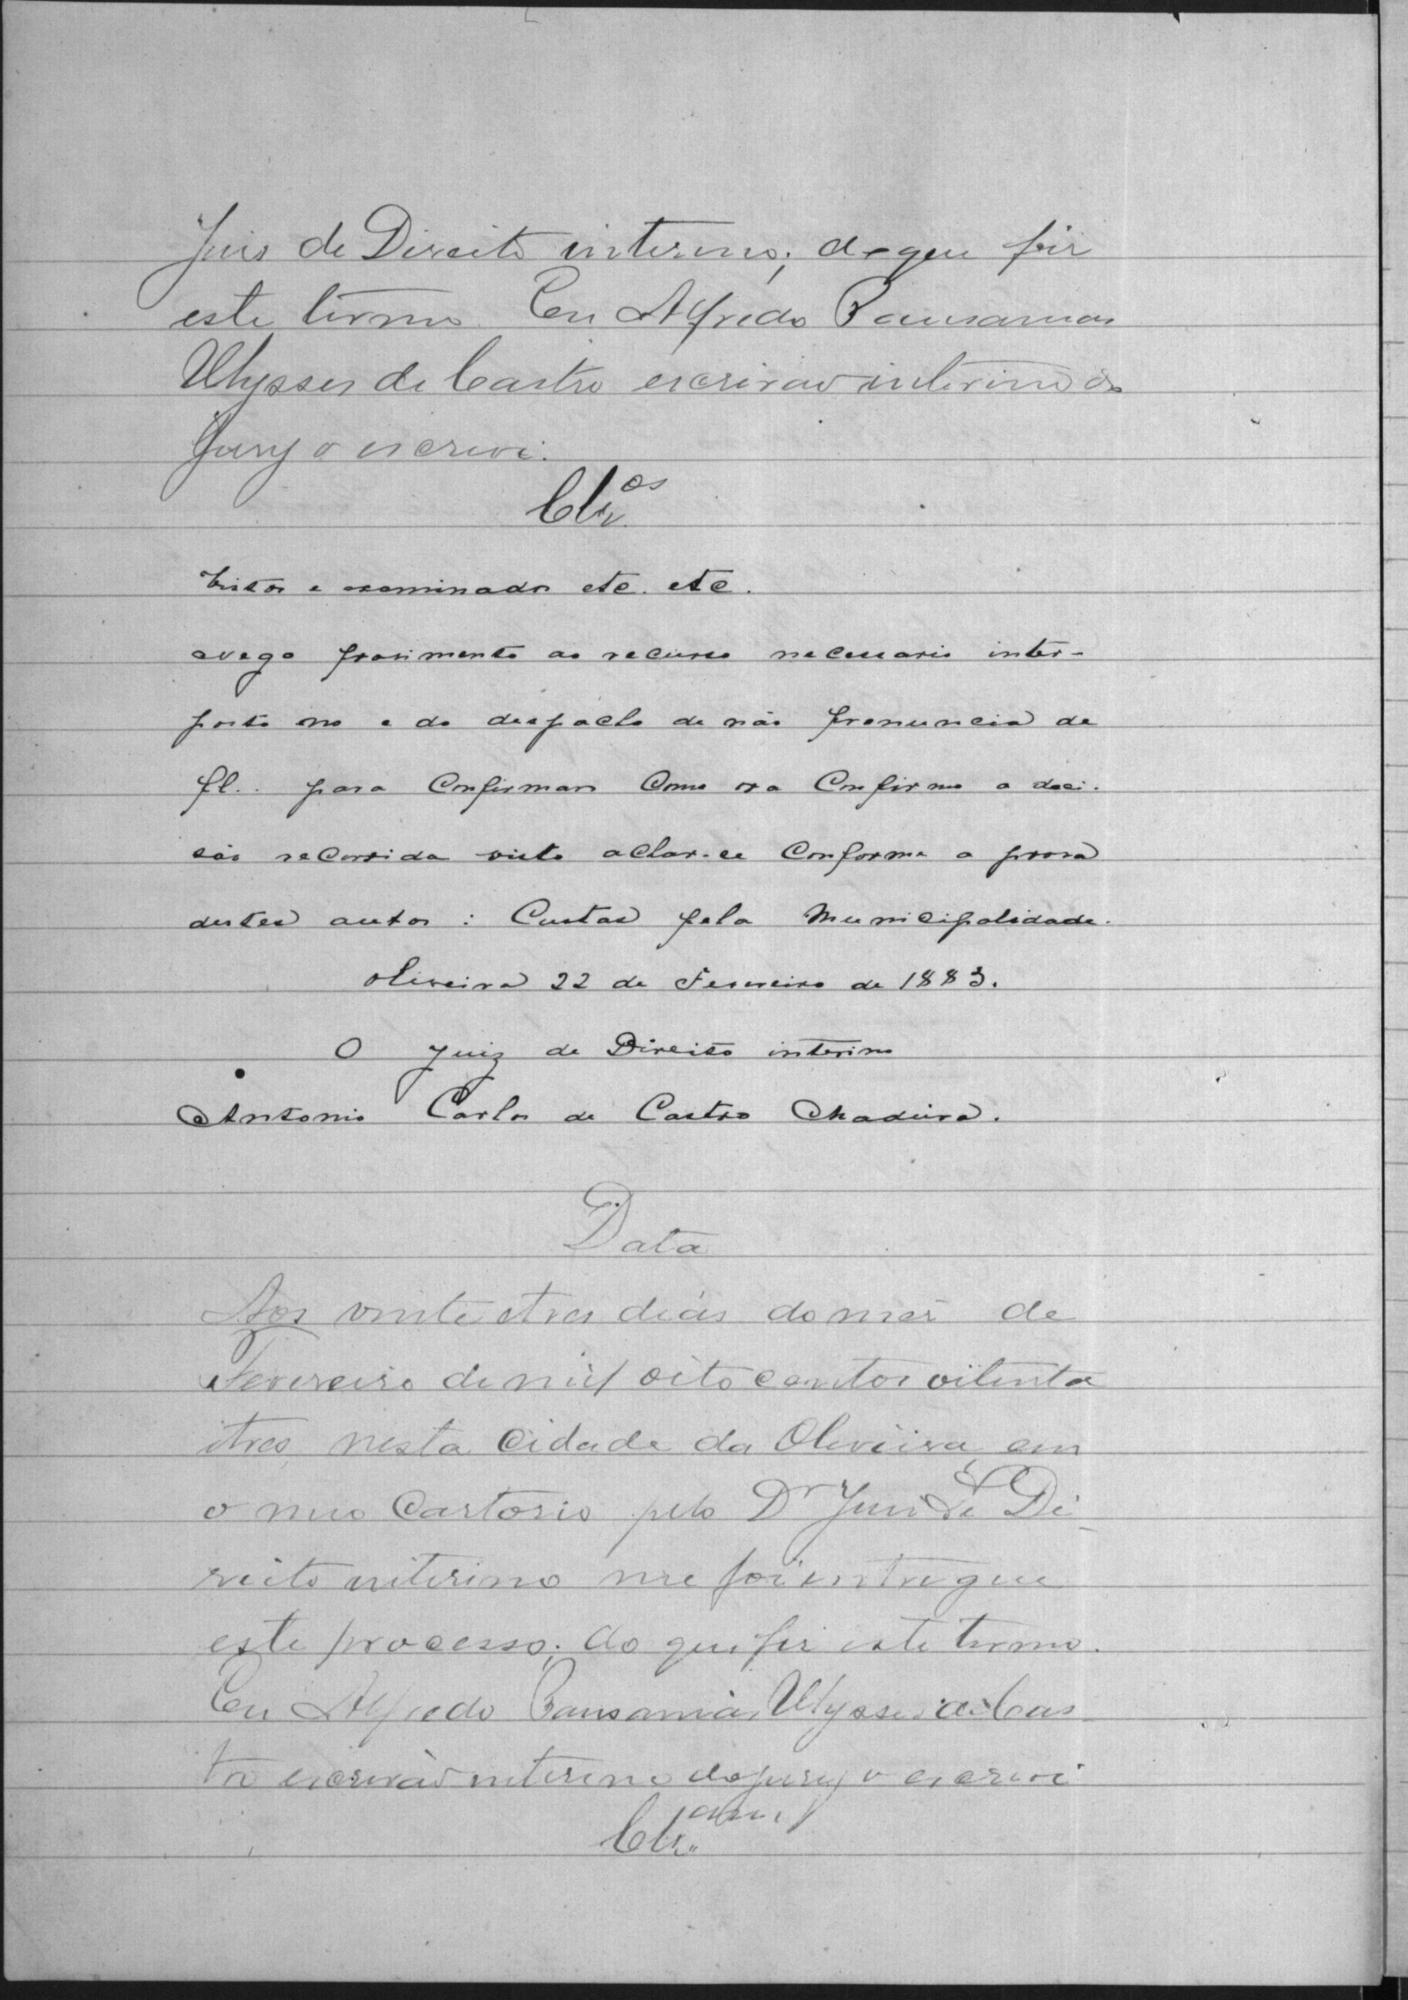 Juis de Direito interino; do que fiz
este termo. Eu Alfredo Pausanias
Ulysses de Castro escrivão interino do
Jury o escrevi.
Clz.os
Vistos e examinados etc. etc.
Nego provimento ao recurso necessario inter-
posto no e do despacho de não pronuncia de
fl.. para confirmar como ora confirmo a deci-
são recorrida visto achar-se conforme a prova
destes autos: Custas pela Municipalidade.
Oliveira 22 de Fevereiro de 1883.
O Juiz de Direito interino
Antonio Carlos de Castro Madeira.
Data
Aos vinte e tres dias do mes de
Fevereiro de mil oito centos oitenta
e tres, nesta Cidade da Oliveira, em
o meu Cartorio pelo Dr Juis de Di-
reito interino me foi entregue
este processo; do que fiz este termo.
Eu Alfredo Pausanias Ulysses de Cas-
tro escrivão interino do jury o escrevi